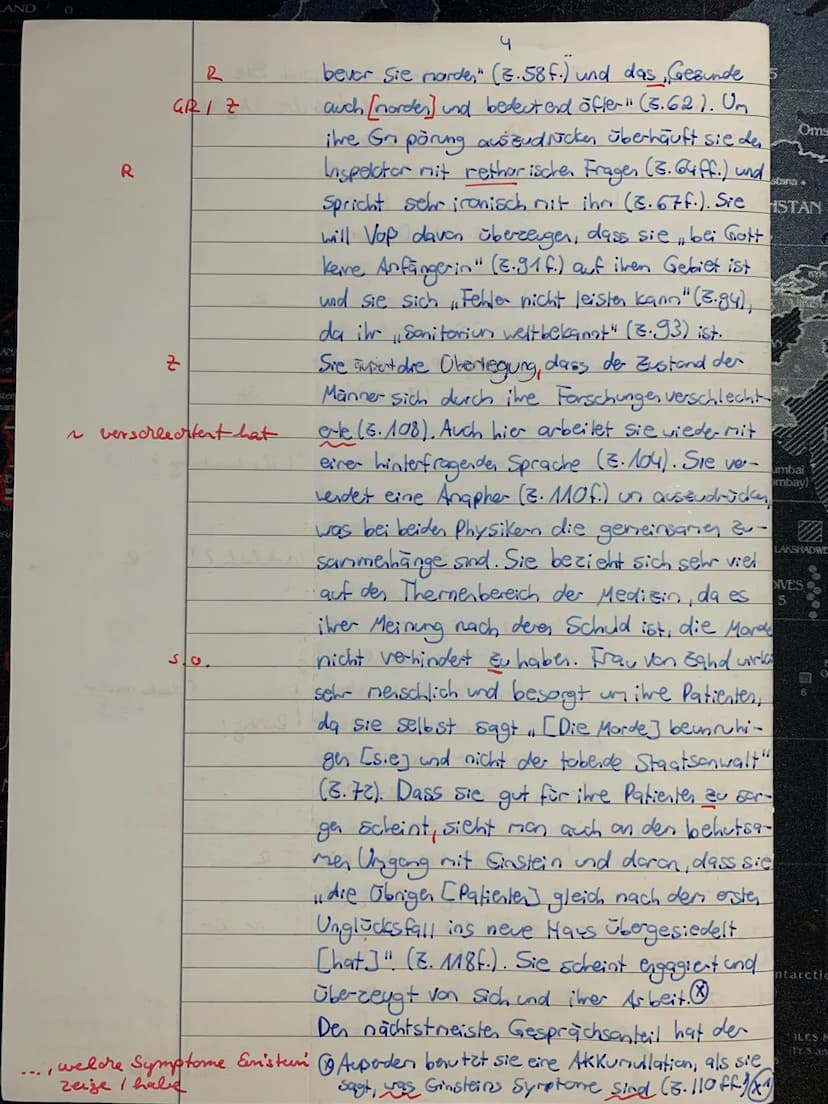 4
R bevor sie morden" (Z.58f.) und das „Gesunde
GR / Z auch [morden] und bedeutend öfter" (Z.62). Um
ihre Empörung auszudrücken überhäuft sie den
R Inspektor mit rethorischen Fragen (Z.64ff.) und
spricht sehr ironisch mit ihm (Z.67f.). Sie
will Voß davon überzeugen, dass sie „bei Gott
keine Anfängerin" (Z.91f.) auf ihrem Gebiet ist
und sie sich „Fehler nicht leisten kann" (Z.94),
da ihr „Sanatorium weltbekannt" (Z.93) ist.
Z Sie äußert die Überlegung, dass der Zustand der
Männer sich durch ihre Forschungen verschlecht-
~ verschlechtert hat erte (Z.108). Auch hier arbeitet sie wieder mit
einer hinterfragenden Sprache (Z.104). Sie ver-
wendet eine Anapher (Z.110f.) um auszudrücken,
was bei beiden Physikern die gemeinsamen Zu-
sammenhänge sind. Sie bezieht sich sehr viel
auf den Themenbereich der Medizin, da es
ihrer Meinung nach deren Schuld ist, die Morde
s.o. nicht verhindert zu haben. Frau von Zahnd wirkt
sehr menschlich und besorgt um ihre Patienten,
da sie selbst sagt „[Die Morde] beunruhi-
gen [sie] und nicht der tobende Staatsanwalt"
(Z.72). Dass sie gut für ihre Patienten zu sor-
gen scheint, sieht man auch an den behutsa-
men Umgang mit Einstein und daran, dass sie
„die Übrigen [Patienten] gleich nach dem ersten
Unglücksfall ins neue Haus übergesiedelt
[hat]". (Z.118f.). Sie scheint engagiert und
überzeugt von sich und ihrer Arbeit. (x)
Den nächstmeisten Gesprächsanteil hat der
..., welche Symptome Einstein (x) Außerdem benutzt sie eine Akkumullation, als sie
zeige / habe sagt, was Einsteins Symptome sind (Z.110ff.)